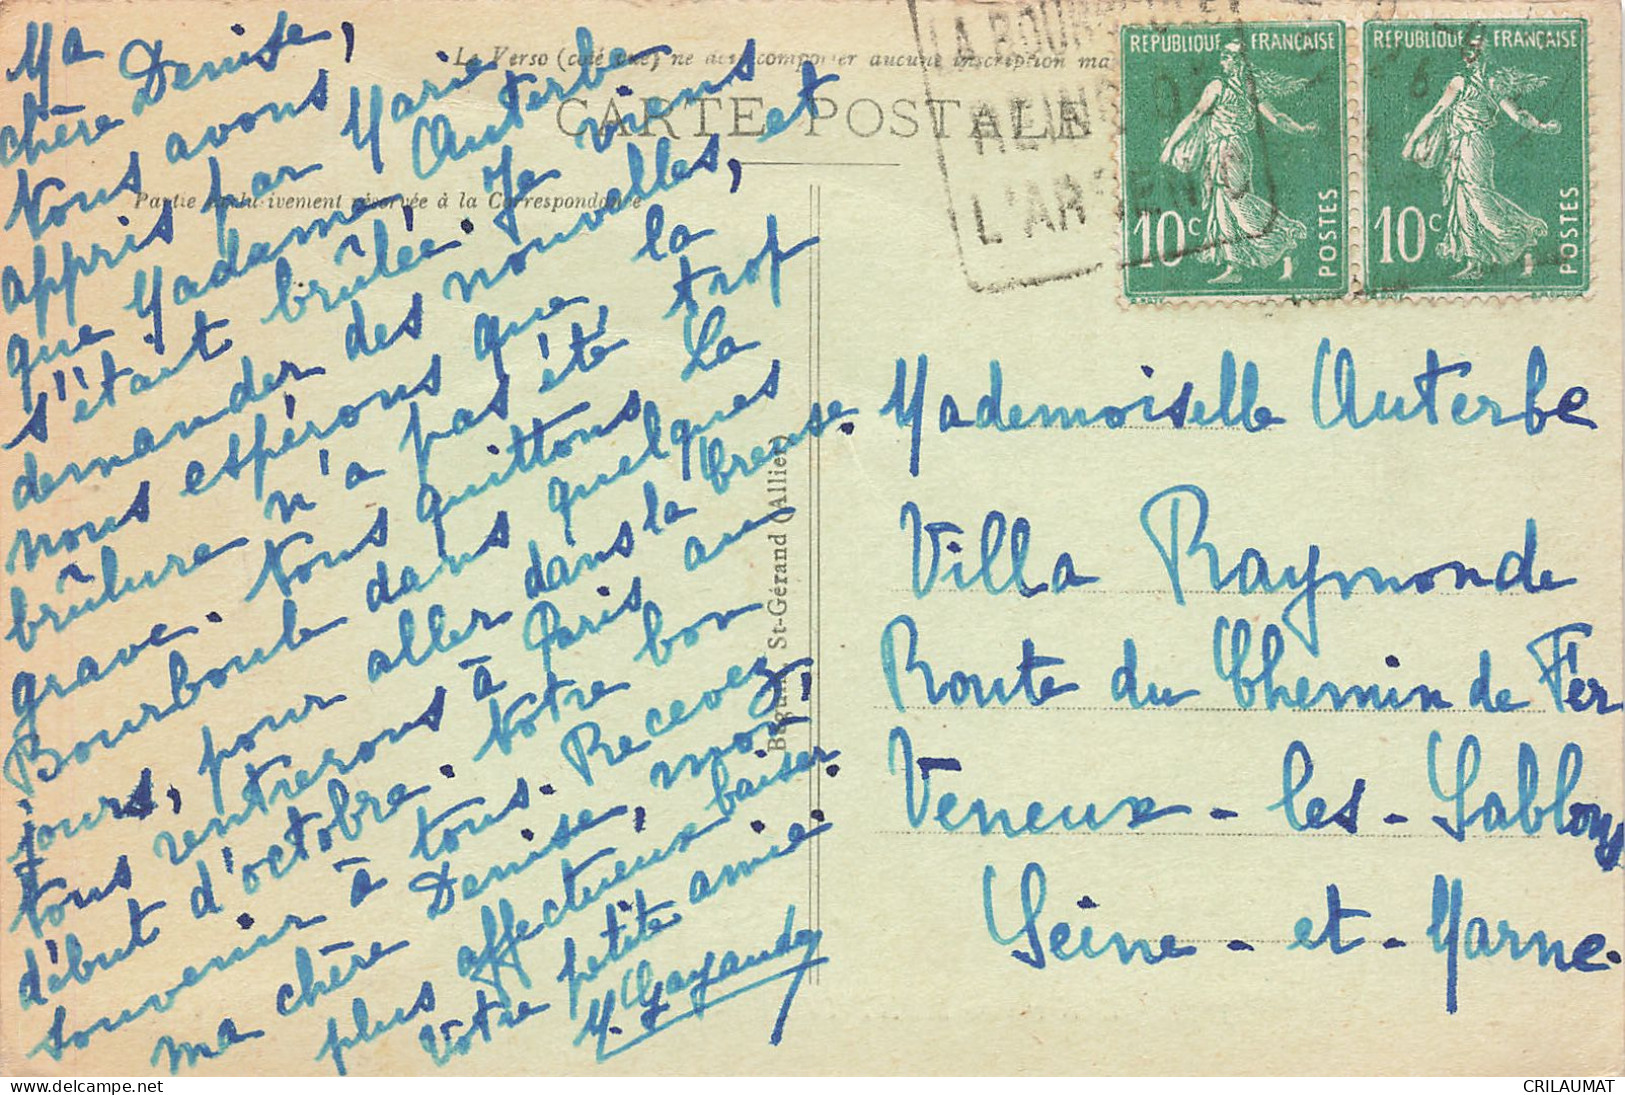 Le Verso (côté vue) ne doit comporter aucune inscription ma
CARTE POSTALE
Partie exclusivement réservée à la Correspondance
Ma
chère Denise,
Nous avons
appris par Marie
que Madame Auterbe
s'était brûlée. Je viens
demander des nouvelles, et
nous espérons que la
brûlure n'a pas été trop
grave. Nous quittons La
Bourboule dans quelques
jours, pour aller dans la Creuse.
Nous rentrerons à Paris au
début d'octobre. Notre bon
souvenir à tous. Recevez,
ma chère Denise, mon
plus affectueux baiser.
Votre petite amie.
St-Gérand (Allier)
LA BOURBOULE
REINE DE
L'ARSENIC
REPUBLIQUE FRANÇAISE
10c
POSTES
REPUBLIQUE FRANÇAISE
10c
POSTES
Mademoiselle Auterbe
Villa Raymonde
Route du Chemin de Fer
Veneux-les-Sablons
Seine-et-Marne.
CRILAUMAT